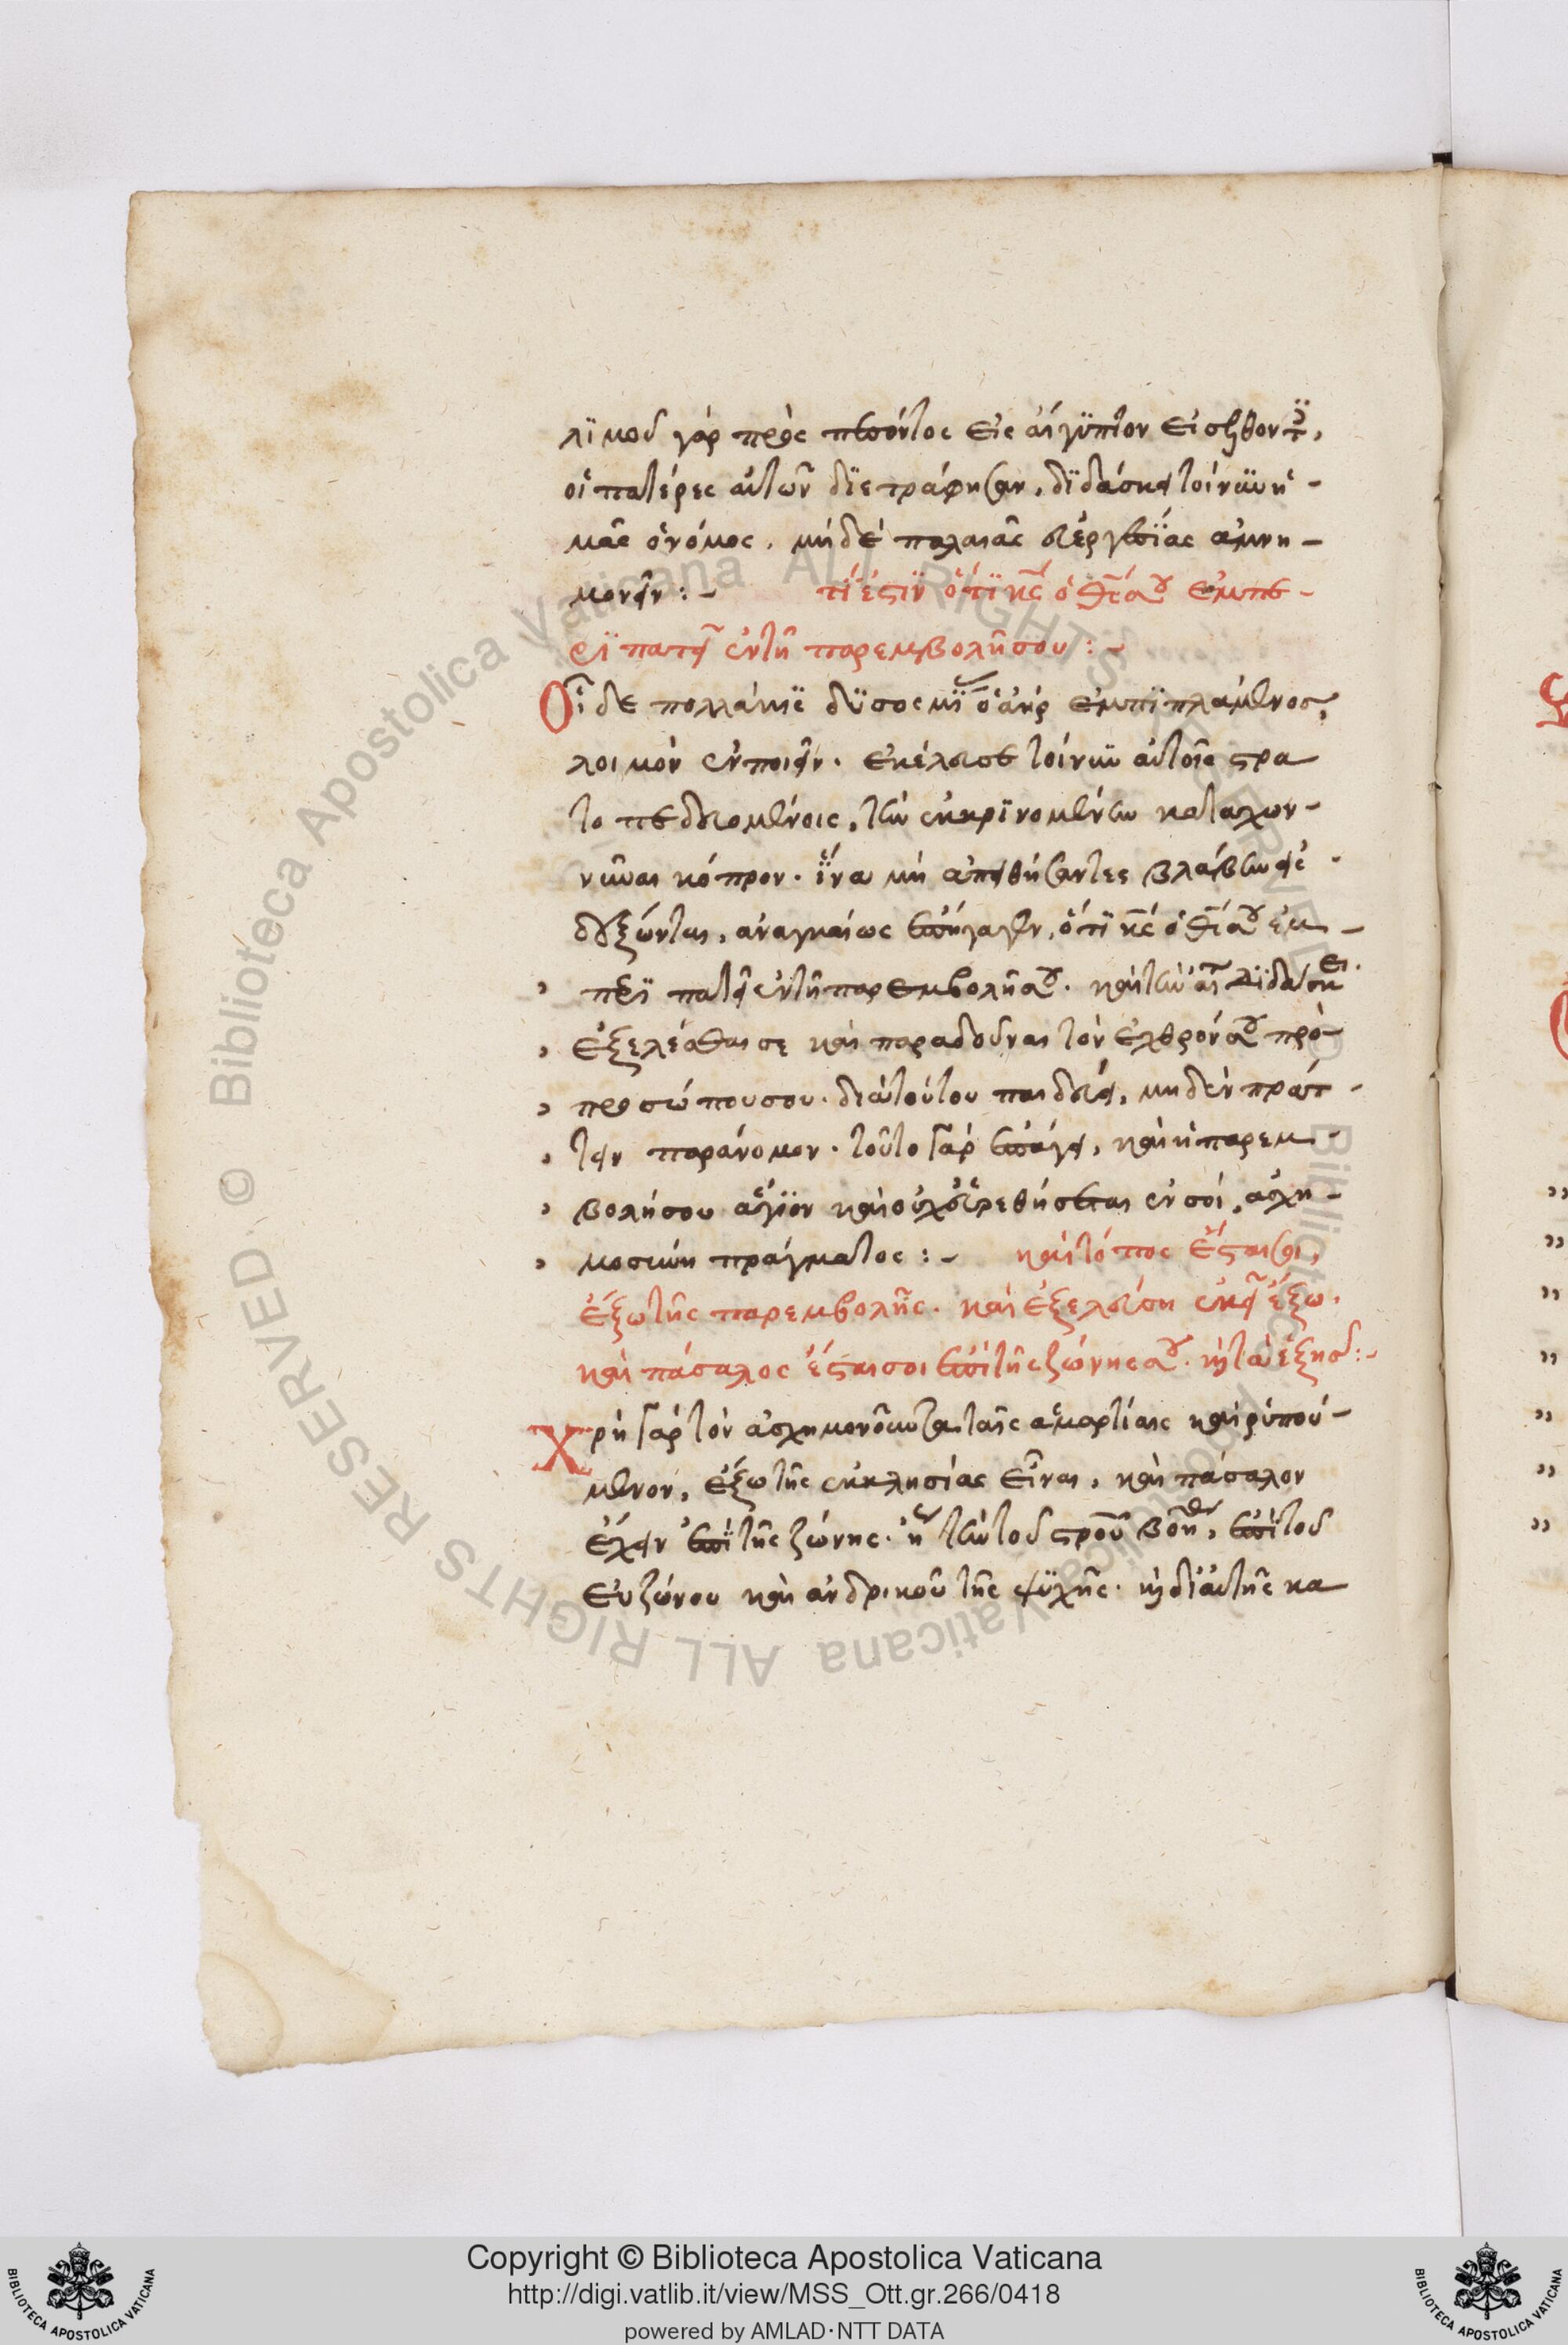 λϊμοῦ γάρ πρὸς πεσόντος εἰς αἴγϋπτον εἰσῆλθον
οἱ πατέρες αὐτῶν διετράφησαν. διδάσκει τοίνϋν ἡ-
μᾶς ὁ νόμος. μὴ δὲ παλαιᾶς εὐεργεσίας ἀμνη-
μονεῖν :- τί ἐστϊν ὅτϊ κς ὁ θς σου ἐμπε-
ρϊπατεῖ ἐν τῆ παρεμβολῆ σου :-
Οἶδε πολλάκις δϋσοσμίας ὁ ἀὴρ ἐμπϊπλάμενος,
λοιμὸν ἐνποιεῖν. ἐκέλευσε τοίνυν αὐτοῖς στρα
τοπεδευομένοις, τὴν ἐκκρϊνομένην καταχων-
νῦναι κόπρον. ἵνα μὴ ἀπειθήσαντες βλάβην εἰσ-
δέξωνται, ἀναγκαίως ἐπήγαγεν, ὅτϊ κς ὁ θς σου ἐμ-
περϊπατεῖ ἐν τῆ παρεμβολῆ σου. καὶ τὴν αἰτίαν διδάσκει.
ἐξελέσθαι σε καὶ παραδοῦναι τὸν ἐχθρόν σου πρὸ
προσώπου σου. διὰ τούτου παιδεύει, μηδὲν πράτ-
τειν παράνομον. τοῦτο γὰρ ἐπάγει, καὶ ἡ παρεμ-
βολή σου ἅγϊον καὶ οὐχ εὑρεθήσεται ἐν σοί, ἀσχη-
μοσύνη πράγματος :- καὶ τόπος ἔσται σοι,
ἔξω τῆς παρεμβολῆς. καὶ ἐξελεύση ἐκεῖ ἔξω.
καὶ πάσαλος ἔσται σοι ἐπὶ τῆς ζώνης σου. καὶ τὰ ἑξῆς :-
Χρὴ γὰρ τὸν ἀσχημονοῦντα ταῖς ἁμαρτίαις καὶ ῥϋπού-
μενον, ἔξω τῆς ἐκκλησίας εἶναι, καὶ πάσαλον
ἔχειν ἐπὶ τῆς ζώνης. ἤγουν τὴν τοῦ στροῦ βοήθειαν, ἐπὶ τοῦ
εὐζώνου καὶ ἀνδρικοῦ τῆς ψϋχῆς. καὶ δι' αὐτῆς κα
Copyright © Biblioteca Apostolica Vaticana
http://digi.vatlib.it/view/MSS_Ott.gr.266/0418
powered by AMLAD·NTT DATA
© Biblioteca Apostolica Vaticana ALL RIGHTS RESERVED
BIBLIOTECA APOSTOLICA VATICANA
BIBLIOTECA APOSTOLICA VATICANA